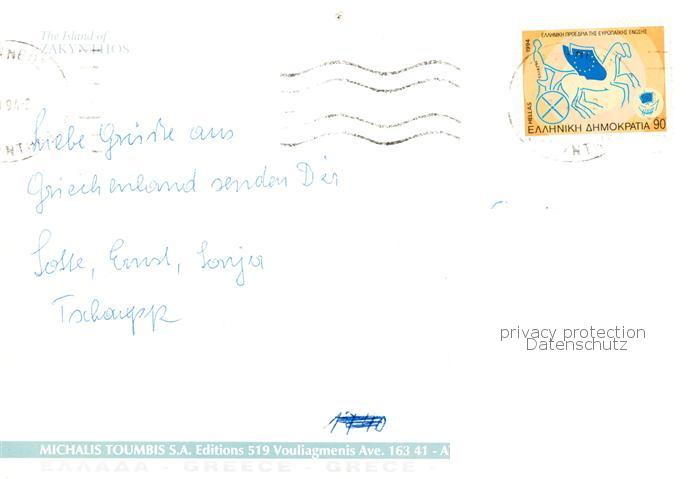 The Island of
ZAKYNTHOS
94
ΕΛΛΗΝΙΚΗ ΠΡΟΕΔΡΙΑ ΤΗΣ ΕΥΡΩΠΑΪΚΗΣ ΕΝΩΣΗΣ
1994
HELLAS
ΕΛΛΗΝΙΚΗ ΔΗΜΟΚΡΑΤΙΑ 90
Liebe Grüße aus
Griechenland senden Dir
Ernst, Sonja
privacy protection
Datenschutz
MICHALIS TOUMBIS S.A. Editions 519 Vouliagmenis Ave. 163 41 -
ΕΛΛΑΔΑ - GREECE - GRECE -